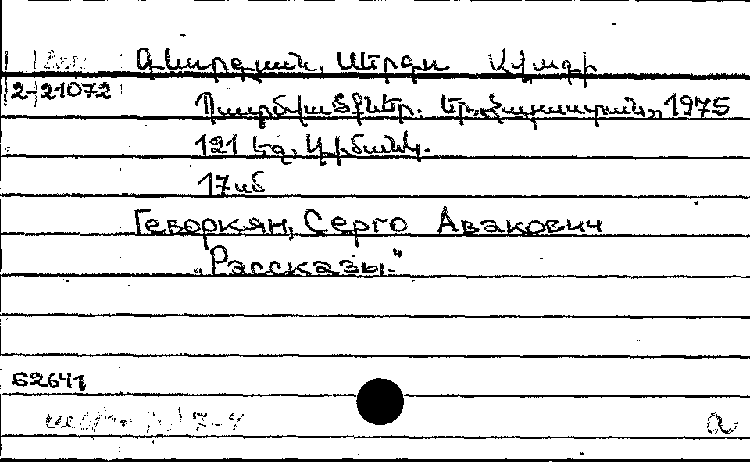 Գևորգյան, Սերգո Ավագի
2-21072
Պատմվածքներ. Եր., „Հայաստան„, 1975
121 էջ, նկ.
17սմ
Геворкян, Серго Авакович
„Рассказы."
Б2641
7-4
а